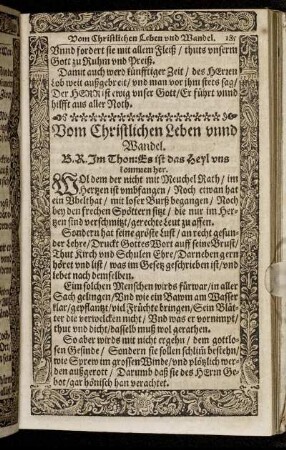 Vom Christlichen Leben vnd Wandel. 187
Vnnd fordert sie mit allem Fleiß / thuts vnserm
Gott zu Ruhm vnd Preiß.
Damit auch werd künfftiger Zeit / des HErren
Lob weit außgebreit / vnd man vor ihm stets sag /
Der HERR ist ewig vnser Gott / Er führt vnnd
hilfft aus aller Noth.
Vom Christlichen Leben vnnd
Wandel.
B. R. Im Thon: Es ist das Heyl vns
kommen her.
WOl dem der nicht mit Meuchel Rath / im
Hertzen ist vmbfangen / Noch etwan hat
ein Vbelthat / mit loser Bursz begangen / Noch
bey den frechen Spöttern sitzt / die nur im Her-
tzen sind verschmitzt / gerechte Leut zu affen.
Sondern hat seine gröste Lust / an recht gesun-
der Lehre / Druckt Gottes Wort auff seine Brust /
Thut Kirch vnd Schulen Ehre / Darneben gern
höret vnd list / was im Gesetz geschrieben ist / vnd
lebet nach demselben.
Eim solchen Menschen wirds fürwar / in aller
Sach gelingen / Vnd wie ein Bawm am Wasser
klar / gepflantzt / viel Früchte bringen / Sein Blät-
ter die verwelcken nicht / Vnd was er vornimpt /
thut vnd dicht / dasselb muß wol gerathen.
So aber wirds mit nicht ergehn / dem gottlo-
sen Gesinde / Sondern sie sollen schlim bestehn /
wie Sprew im grossen Winde / vnd plötzlich wer-
den außgerott / Darumb daß sie des HErrn Ge-
bot / gar hönisch han verachtet.